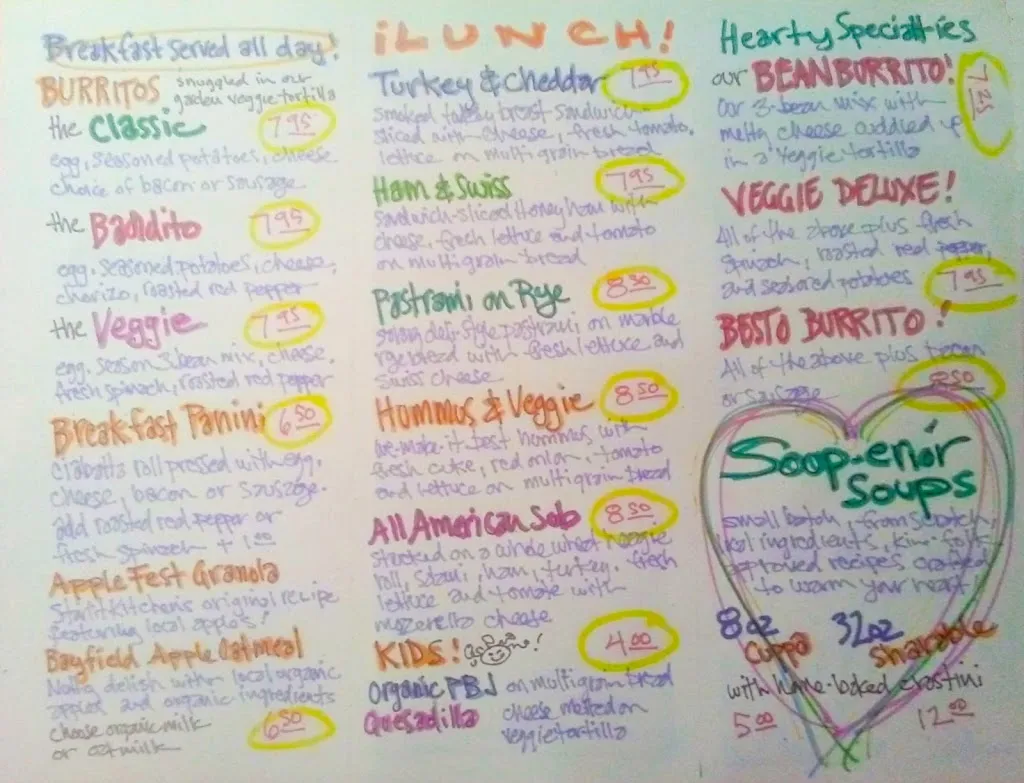 Breakfast served all day!
BURRITOS snuggled in our
garden veggie tortilla
the Classic 7.95
egg, seasoned potatoes, cheese
choice of bacon or sausage
the Bandito 7.95
egg, seasoned potatoes, cheese,
chorizo, roasted red pepper
the Veggie 7.95
egg, season 3 bean mix, cheese,
fresh spinach, roasted red pepper
Breakfast Panini 6.50
ciabatta roll pressed with egg,
cheese, bacon or sausage.
add roasted red pepper or
fresh spinach + 1.00
Apple Fest Granola
Starlit Kitchen's original recipe
featuring local apples!
Bayfield Apple Oatmeal
delish with local organic
apples and organic ingredients
choose organic milk
or oatmilk 6.50
¡LUNCH!
Turkey & Cheddar 7.95
smoked turkey breast sandwich-
sliced with cheese, fresh tomato,
lettuce on multigrain bread
Ham & Swiss 7.95
sandwich-sliced Honey ham with
cheese, fresh lettuce and tomato
on multigrain bread
Pastrami on Rye 8.50
deli-style pastrami on marble
rye bread with fresh lettuce and
swiss cheese
Hommus & Veggie 8.50
we-make-it-best hommus with
fresh cuke, red onion, tomato
and lettuce on multigrain bread
All American Sub 8.50
stacked on a whole wheat hoagie
roll, salami, ham, turkey, fresh
lettuce and tomato with
mozerella cheese
KIDS! 4.00
Organic PBJ on multigrain bread
Quesadilla cheese melted on
veggie tortilla
Hearty Specialties
our BEAN BURRITO! 7.25
our 3-bean mix with
melty cheese cuddled up
in a veggie tortilla
VEGGIE DELUXE!
All of the above plus fresh
spinach, roasted red pepper,
and seasoned potatoes 7.95
BESTO BURRITO!
All of the above plus bacon
or sausage 8.50
Soop-erior
Soups
small batch, from scratch,
local ingredients, kin-folk
approved recipes crafted
to warm your heart!
8oz 32oz
cuppa sharable
with home-baked crostini
5.00 12.00